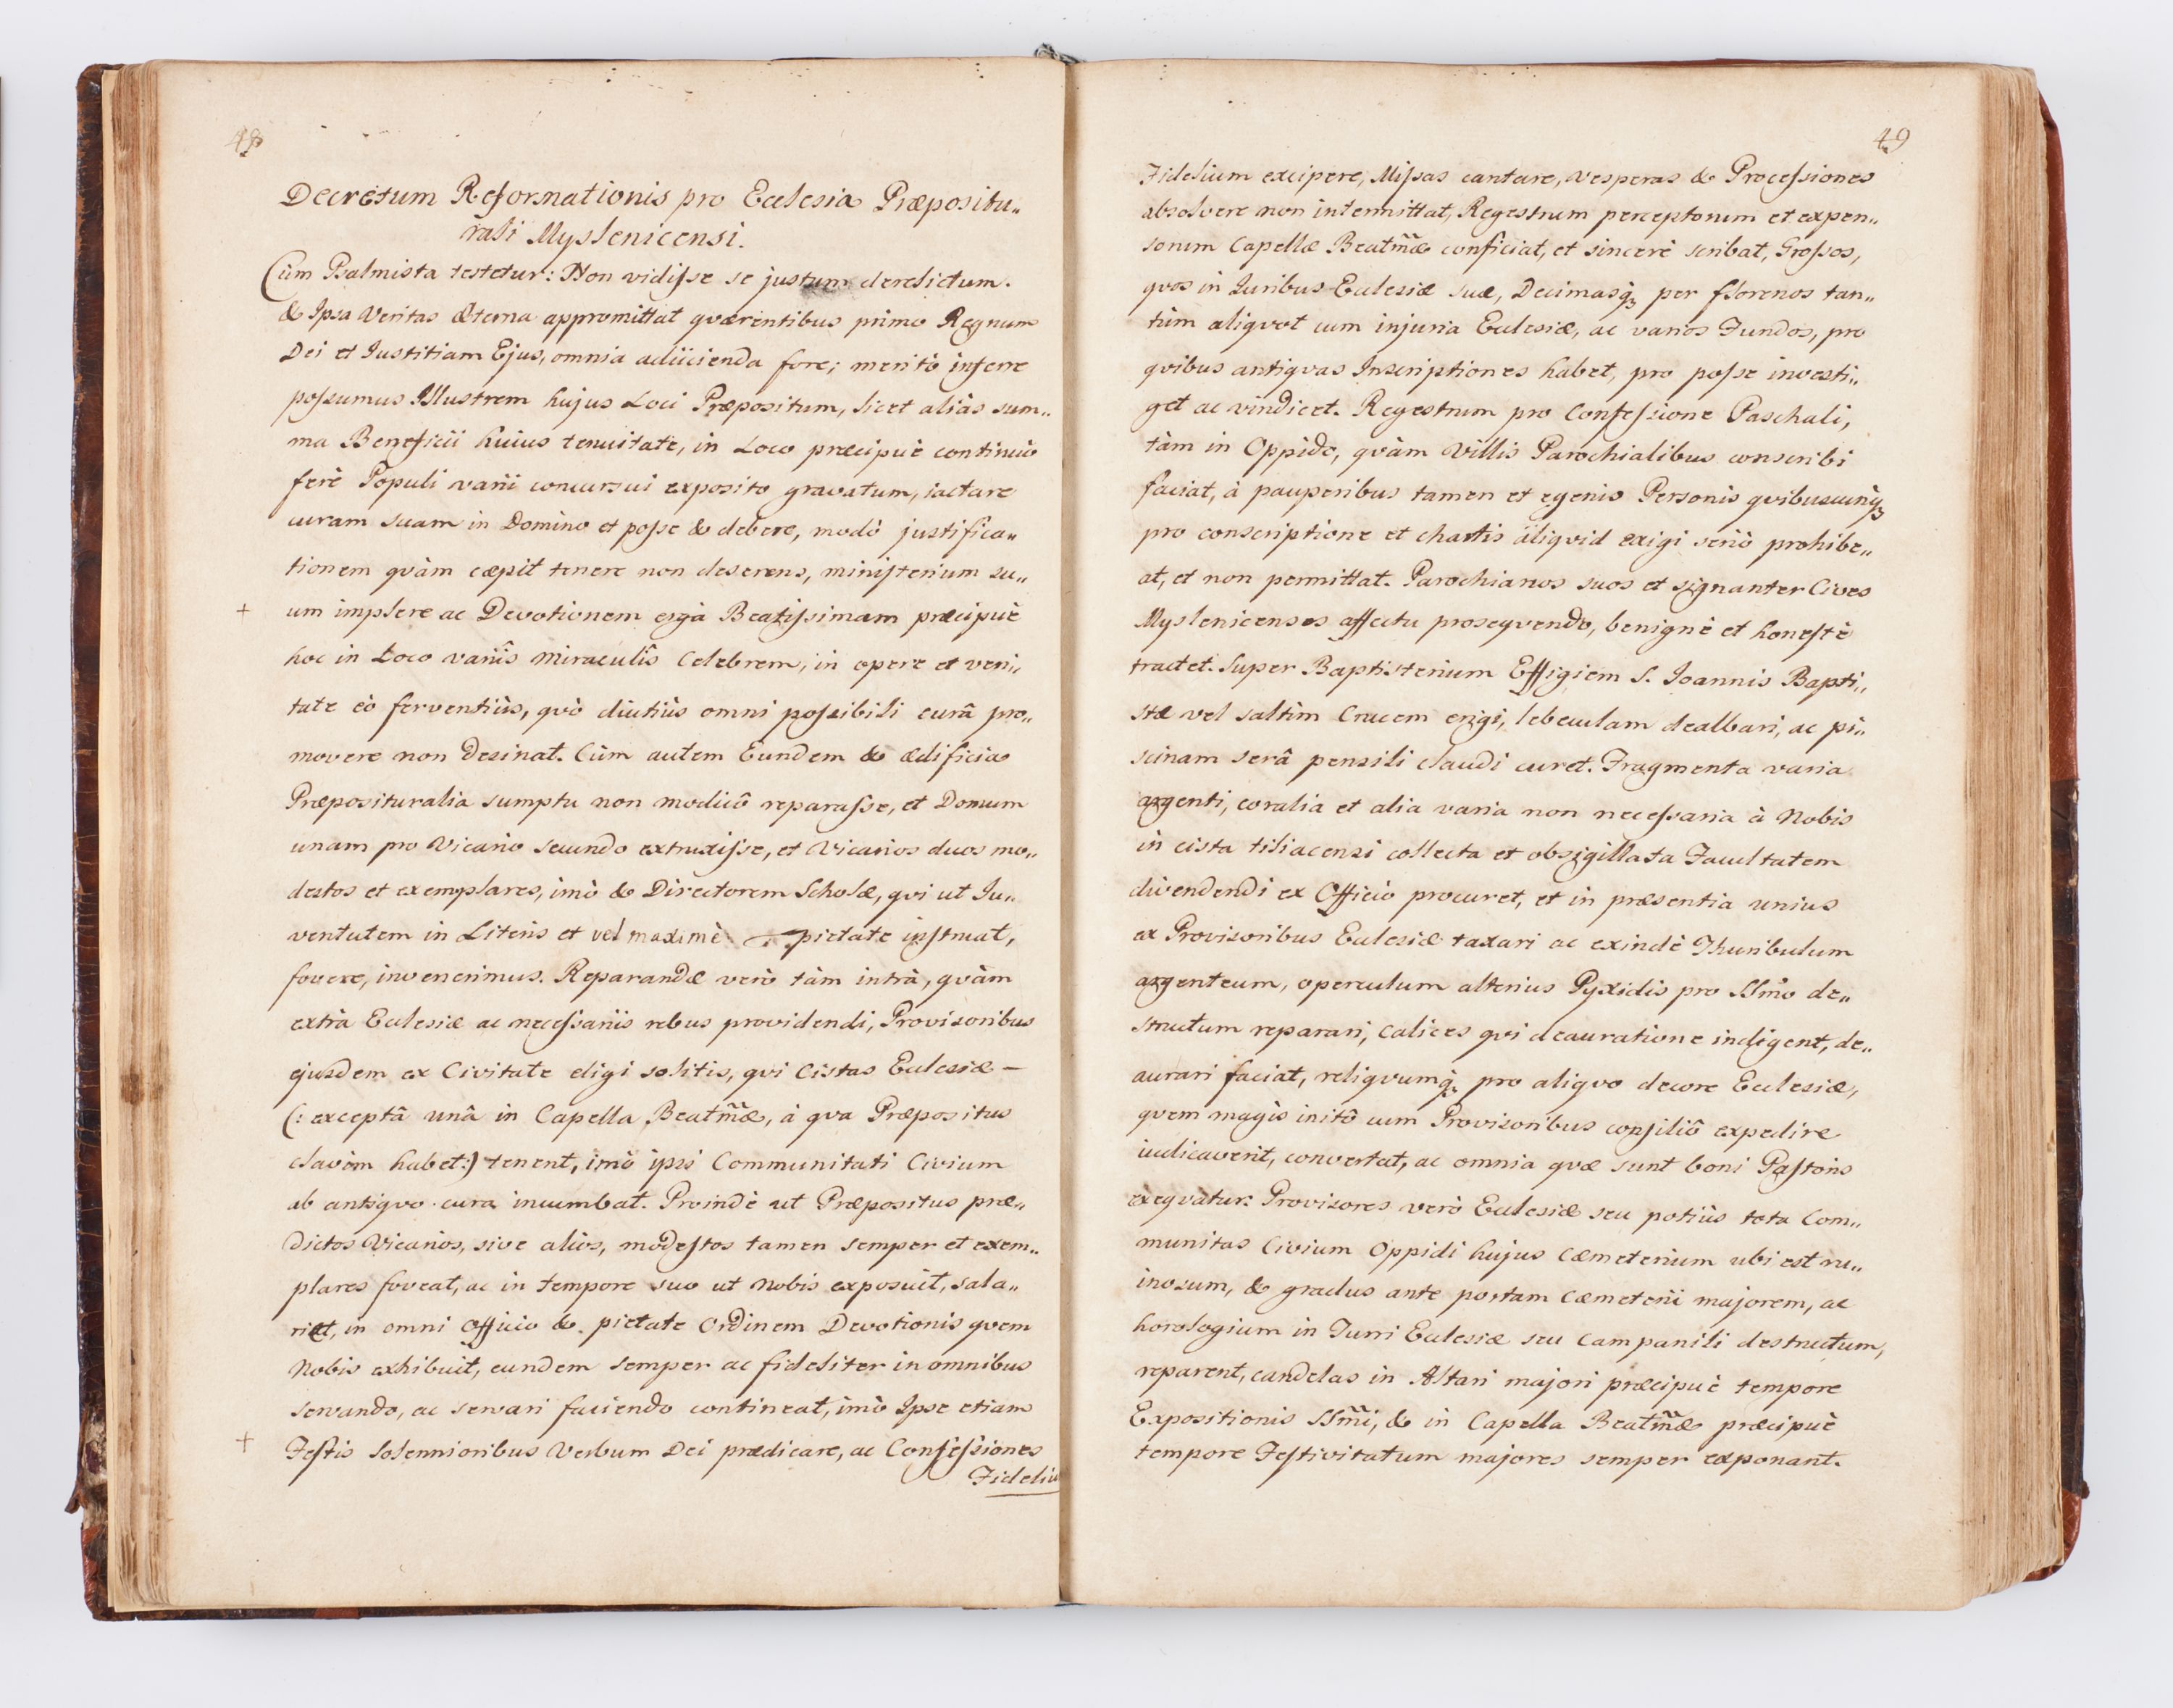 48
Decretum Reformationis pro Ecclesia Præpositu„
rali Myslenicensi.
Cùm Psalmista testetur: Non vidisse se justum derelictum.
& Ipsa Veritas Æterna appromittat quærentibus primo Regnum
Dei et Iustitiam Ejus, omnia adiicienda fore; meritò inferre
possumus Illustrem hujus Loci Præpositum, licet aliàs sum„
ma Beneficii huius tenuitate, in Loco præcipuè continuò
ferè Populi varii concursui exposito gravatum, iactare
curam suam in Domino et posse & debere, modò justifica„
tionem quàm cæpit tenere non deserens, ministerium su„
+ um implere ac Devotionem ergà Beatissimam præcipuè
hoc in Loco variîs miraculîs Celebrem, in opere et veri„
tate eò ferventiùs, quò diutiùs omni possibili curâ pro„
movere non desinat. Cùm autem Eundem & ædificia
Præposituralia sumptu non modicô reparasse, et Domum
unam pro Vicario secundo extruxisse, et Vicarios duos mo„
destos et exemplares, imò & Directorem Scholæ, qui ut Ju„
ventutem in Literis et vel maximè pietate instruat,
fovere, invenerimus. Reparandæ verò tàm intrà, quàm
extrà Ecclesiæ ac necessariis rebus providendi, Provisoribus
ejusdem ex Civitate eligi solitis, qui Cistas Ecclesiæ —
(: exceptâ unâ in Capella Beatm̃æ, à qua Præpositus
clavim habet:) tenent, imò ipsi Communitati Civium
ab antiquo cura incumbat. Proindè ut Præpositus præ„
dictos Vicarios, sive alios, modestos tamen semper et exem„
plares foveat, ac in tempore suo ut Nobis exposuit, sala„
riet, in omni Officio & pietate Ordinem Devotionis quem
Nobis exhibuit, eundem semper ac fideliter in omnibus
servando, ac servari faciendo contineat, imò Ipse etiam
+ Festis Solennioribus Verbum Dei prædicare, ac Confessiones
Fideliu
49
Fidelium excipere, Missas cantare, Vesperas & Processiones
absolvere non intermittat, Regestrum perceptorum et expen„
sorum Capellæ Beatm̃æ conficiat, et sincerè scribat, Grossos,
quos in Iuribus Ecclesiæ suæ, Decimasq̀ꝫ per florenos tan„
tùm aliquot cum injuria Ecclesiæ, ac varios Fundos, pro
quibus antiquas Inscriptiones habet, pro posse investi„
get ac vindicet. Regestrum pro Confessione Paschali,
tàm in Oppido, quàm Villis Parochialibus conscribi
faciat, à pauperibus tamen et egenis Personis quibuscunq̀ꝫ
pro conscriptione et chartis aliquid exigi seriò prohibe„
at, et non permittat. Parochianos suos et signanter Cives
Myslenicenses affectu prosequendo, benignè et honestè
tractet. Super Baptisterium Effigiem S. Ioannis Bapti„
stæ vel saltìm Crucem erigi, lebeculam dealbari, ac pi„
scinam serâ pensili claudi curet. Fragmenta varia
argenti, coralia et alia varia non necessaria à Nobis
in cista tiliacensi collecta et obsigillata Facultatem
divendendi ex Officio procuret, et in præsentia unius
ex Provisoribus Ecclesiæ taxari ac exindè Thuribulum
argenteum, operculum alterius Pyxidis pro SSm̃o de„
structum reparari, Calices qui deauratione indigent, de„
aurari faciat, reliquumq̀ꝫ pro aliquo decore Ecclesiæ,
quem magìs initô cum Provisoribus consiliô expedire
iudicaverit, convertat, ac omnia quæ sunt boni Pastoris
exequatur. Provisores verò Ecclesiæ seu potiùs tota Com„
munitas Civium Oppidi hujus Cæmeterium ubi est ru„
inosum, & gradus ante portam Cæmeterii majorem, ac
horologium in Turri Ecclesiæ seu Campanili destructum,
reparent, candelas in Altari majori præcipuè tempore
Expositionis SSm̃i, & in Capella Beatm̃æ præcipuè
tempore Festivitatum majores semper exponant.